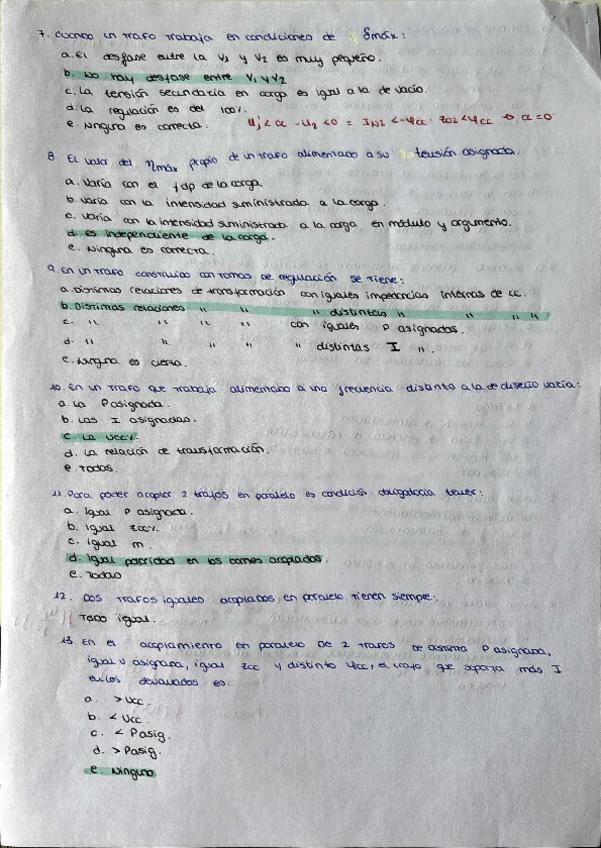 7. Cuando un trafo trabaja en condiciones de δmáx:
a. El desfase entre la V1 y V2 es muy pequeño.
b. No hay desfase entre V1 y V2
c. La tensión secundaria en carga es igual a la de vacío.
d. La regulación es del 100%.
e. Ninguna es correcta.
8 El valor del ηmáx propio de un trafo alimentado a su tensión asignada.
a. Varía con el fdp de la carga
b. varía con la intensidad suministrada a la carga.
c. varía con la intensidad suministrada a la carga en módulo y argumento.
d. es independiente de la carga.
e. Ninguna es correcta.
9. En un trafo construido con tomas de regulación se tiene:
a. Distintas relaciones de transformación con iguales impedancias internas de cc.
b. Distintas relaciones " " " distintas " " "
c. " " " " con iguales P asignadas.
d. " " " " " distintas I ".
e. Ninguna es cierta.
10. En un trafo que trabaja alimentado a una frecuencia distinta a la de diseño varía:
a. La P asignada.
b. Las I asignadas.
c. La Ucc%
d. La relación de transformación.
e Todas.
11. Para poder acoplar 2 trafos en paralelo es condición obligatoria tener:
a. Igual P asignada.
b. igual zcc%.
c. igual m.
d. Igual polaridad en los bornes acoplados.
e. Todas
12. Dos trafos iguales acoplados en paralelo tienen siempre:
Todo igual.
13 En el acoplamiento en paralelo de 2 trafos de distinta P asignada,
igual U asignada, igual zcc y distinto φcc, el trafo que soporta más I
en los devanados es
a. > Ucc.
b. < Ucc.
c. < Pasig.
d. > Pasig.
e. Ninguno